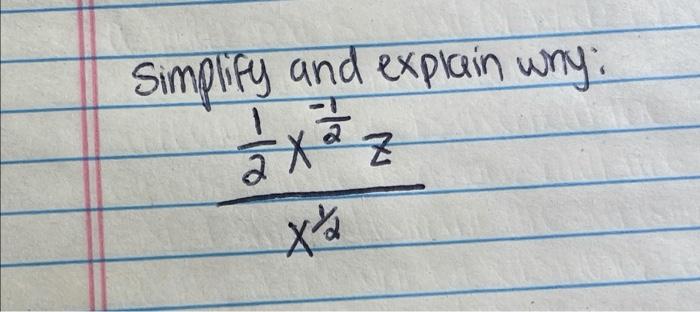 Simplify and explain why:
\frac{\frac{1}{2} x^{\frac{-1}{2}} z}{x^{1/2}}